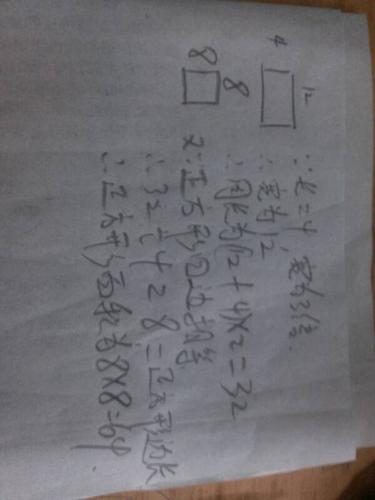 4
12
8
8
∵长=4 宽为3倍.
∴宽为12
∴周长为(12+4)×2=32
又∵正方形四边相等
∴32÷4=8=正方形边长
∴正方形面积为8×8=64.